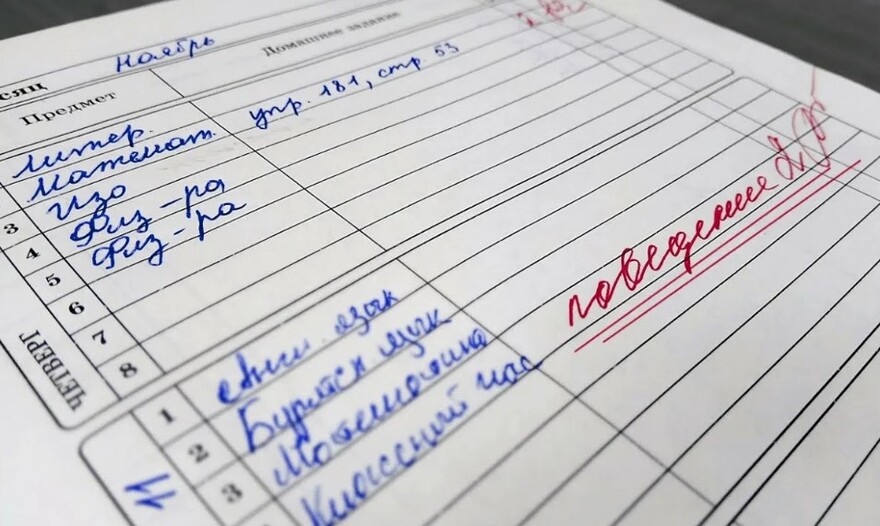 сяц Ноябрь
Предмет Домашнее задание
литер.
Математ. упр. 181, стр. 53
3 Изо
4 Физ-ра
5 Физ-ра
6
7
8
ЧЕТВЕРГ
поведение 2
1 Англ. язык
2 Бурятск язык
3 Математика
Классный час
11